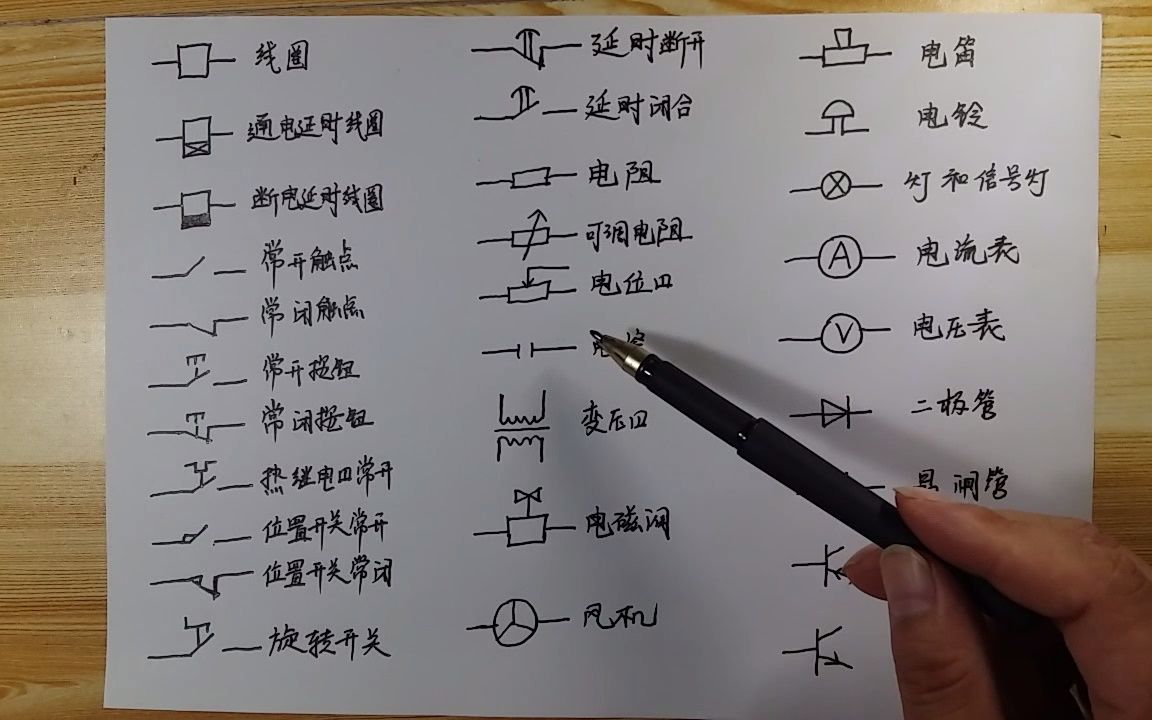 线圈
通电延时线圈
断电延时线圈
常开触点
常闭触点
常开按钮
常闭按钮
热继电四常开
位置开关常开
位置开关常闭
旋转开关
延时断开
延时闭合
电阻
可调电阻
电位四
变压四
电磁阀
风机
电笛
电铃
灯和信号灯
A 电流表
V 电压表
二极管
晶闸管